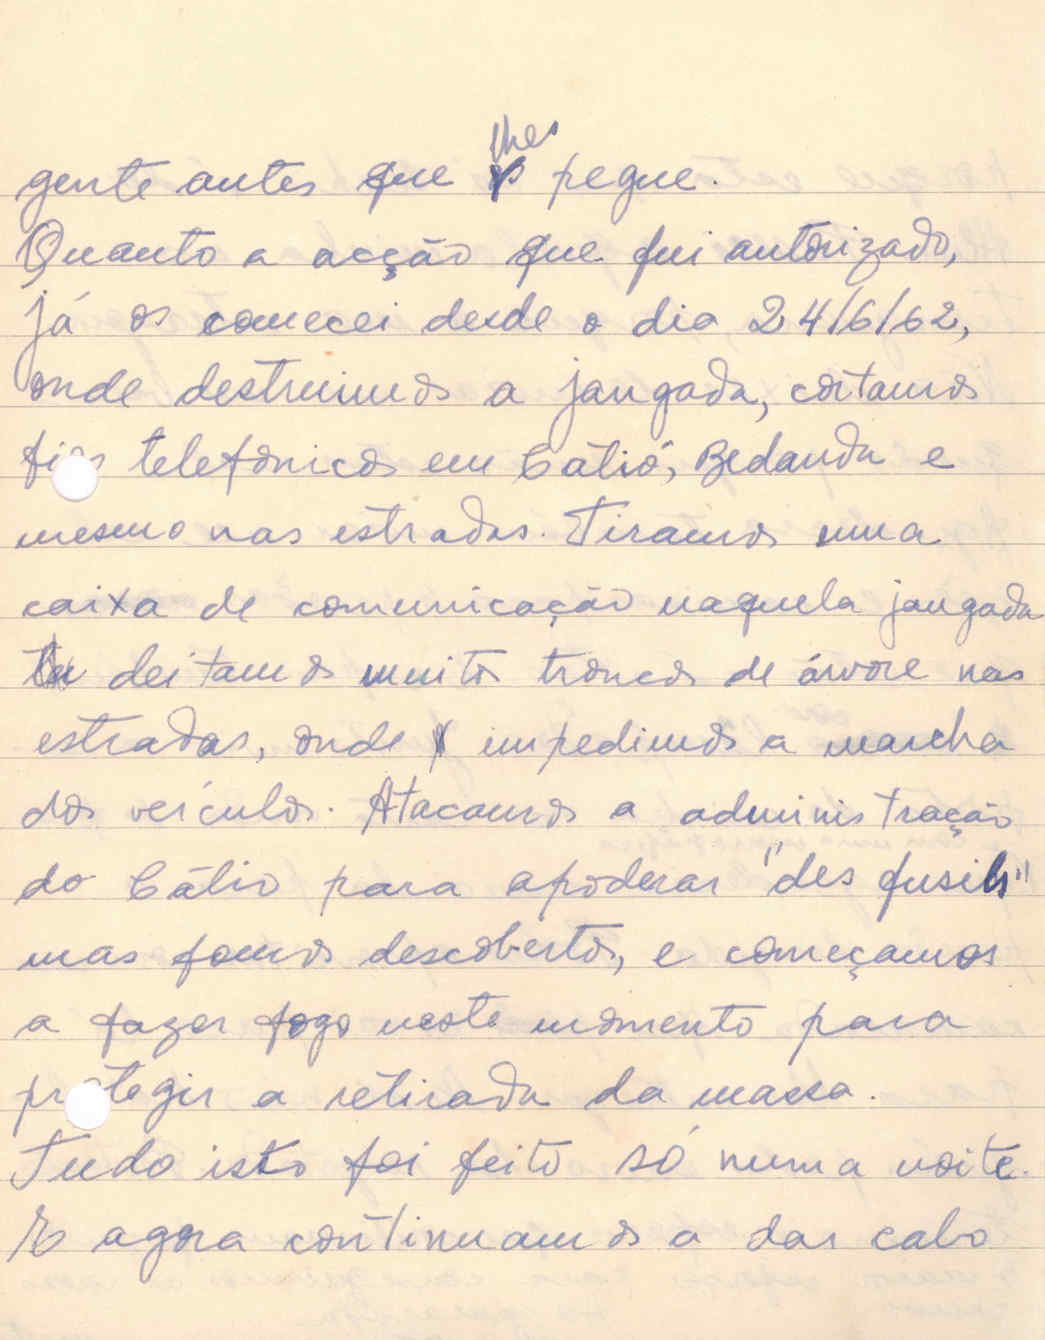 gente antes que lhes pegue.
Quanto a acção que fui autorizado,
já os comecei desde o dia 24/6/62,
onde destruimos a jangada, cortamos
fios telefonicos em Cátió, Bedanda e
mesmo nas estradas. Tiramos uma
caixa de comunicação naquela jangada
deitamos muitos troncos de árvore nas
estradas, onde impedimos a marcha
dos veículos. Atacamos a administração
do Cátio para apoderar "des fusils"
mas fomos descobertos, e começamos
a fazer fogo neste momento para
protegir a retirada da massa.
Tudo isto foi feito só numa noite.
E agora continuamos a dar cabo